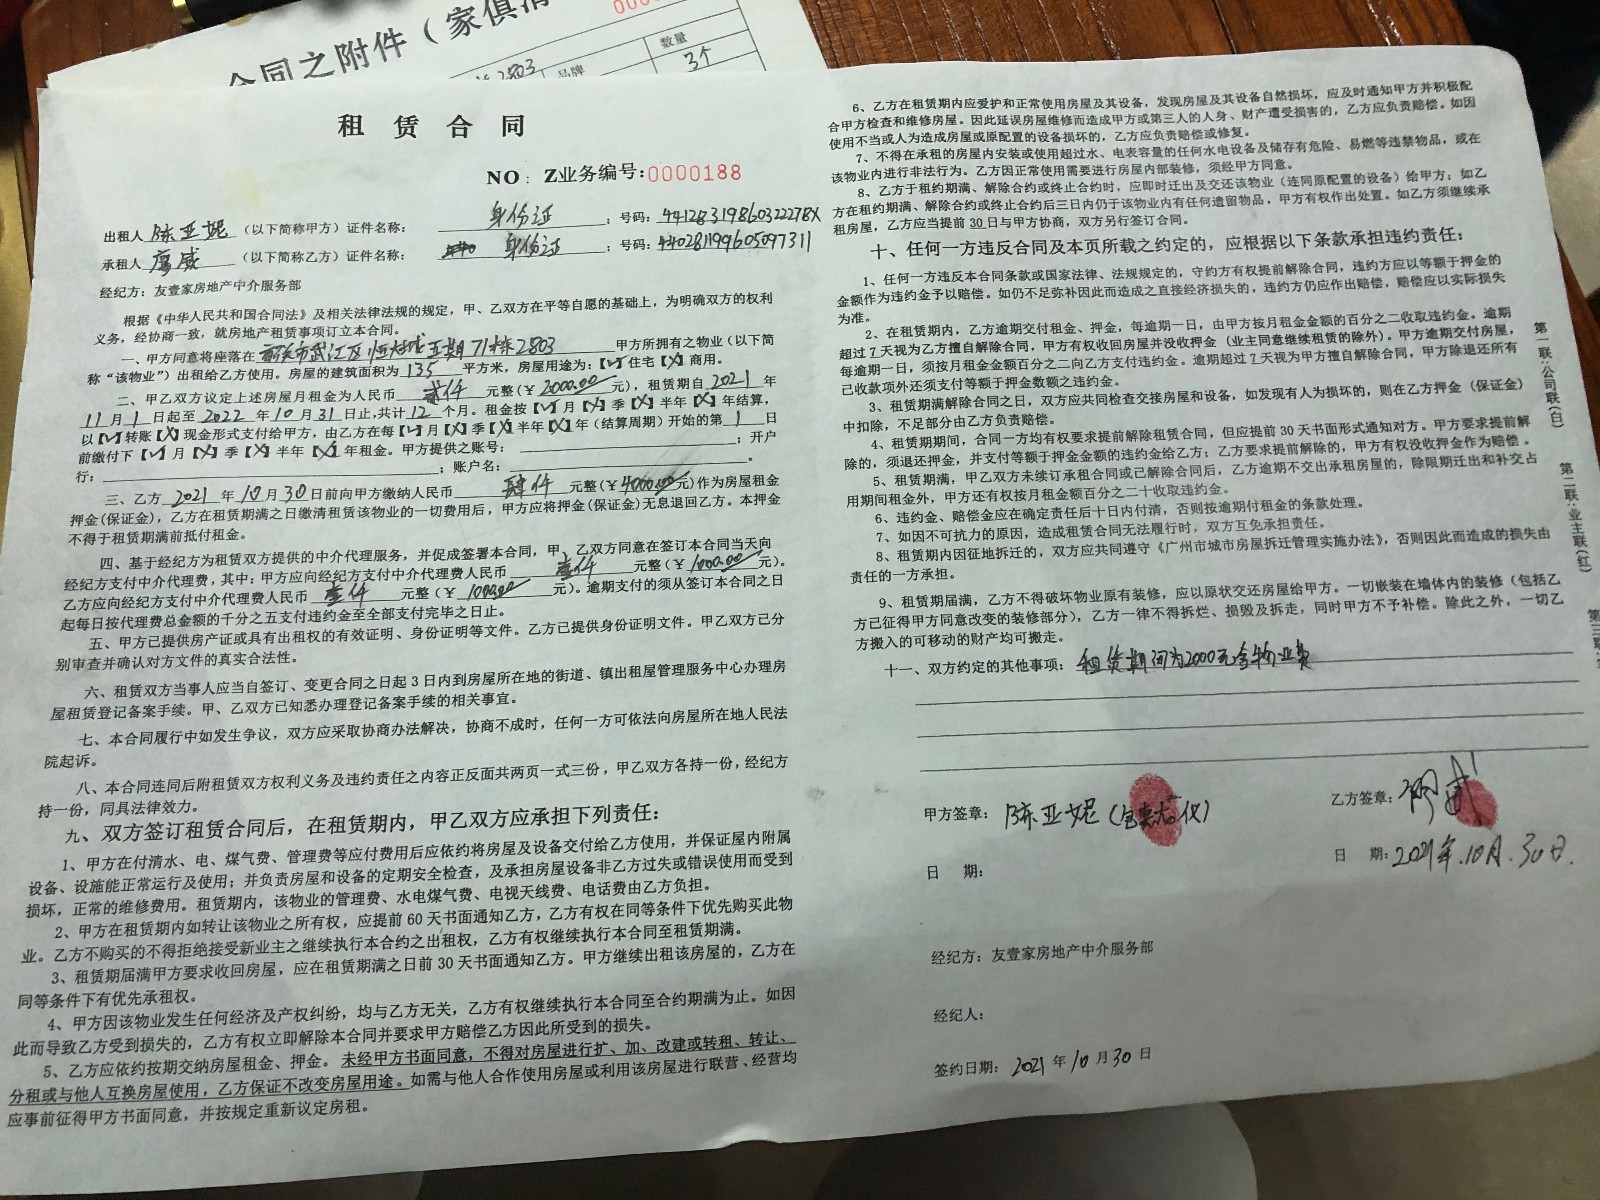 合同之附件（家俱清
000
2803
品牌
数量
3个
租赁合同
NO：Z业务编号:0000188
出租人 陈亚妮 （以下简称甲方）证件名称： 身份证 ；号码：44128319860322278X
承租人 廖威 （以下简称乙方）证件名称： 身份证 ；号码：440281199605097311
经纪方：友壹家房地产中介服务部
根据《中华人民共和国合同法》及相关法律法规的规定，甲、乙双方在平等自愿的基础上，为明确双方的权利
义务，经协商一致，就房地产租赁事项订立本合同。
一、甲方同意将座落在 韶关市武江区恒大城五期71栋2803 甲方所拥有之物业（以下简
称“该物业”）出租给乙方使用。房屋的建筑面积为 135 平方米，房屋用途为：【✓】住宅【X】商用。
二、甲乙双方议定上述房屋月租金为人民币 贰仟 元整（¥ 2000.00 元），租赁期自 2021 年
11 月 1 日起至 2022 年 10 月 31 日止,共计 12 个月。租金按【✓】月【X】季【X】半年【X】年结算，
以【✓】转账【X】现金形式支付给甲方，由乙方在每【✓】月【X】季【X】半年【X】年（结算周期）开始的第 1 日
前缴付下【✓】月【X】季【X】半年【X】年租金。甲方提供之账号： ；开户
行： ；账户名： 。
三、乙方 2021 年 10 月 30 日前向甲方缴纳人民币 肆仟 元整(¥ 4000.00 元)作为房屋租金
押金(保证金)，乙方在租赁期满之日缴清租赁该物业的一切费用后，甲方应将押金(保证金)无息退回乙方。本押金
不得于租赁期满前抵付租金。
四、基于经纪方为租赁双方提供的中介代理服务，并促成签署本合同，甲、乙双方同意在签订本合同当天向
经纪方支付中介代理费，其中：甲方应向经纪方支付中介代理费人民币 壹仟 元整（¥ 1000.00 元）。
乙方应向经纪方支付中介代理费人民币 壹仟 元整（¥ 1000.00 元）。逾期支付的须从签订本合同之日
起每日按代理费总金额的千分之五支付违约金至全部支付完毕之日止。
五、甲方已提供房产证或具有出租权的有效证明、身份证明等文件。乙方已提供身份证明文件。甲乙双方已分
别审查并确认对方文件的真实合法性。
六、租赁双方当事人应当自签订、变更合同之日起 3 日内到房屋所在地的街道、镇出租屋管理服务中心办理房
屋租赁登记备案手续。甲、乙双方已知悉办理登记备案手续的相关事宜。
七、本合同履行中如发生争议，双方应采取协商办法解决，协商不成时，任何一方可依法向房屋所在地人民法
院起诉。
八、本合同连同后附租赁双方权利义务及违约责任之内容正反面共两页一式三份，甲乙双方各持一份，经纪方
持一份，同具法律效力。
九、双方签订租赁合同后，在租赁期内，甲乙双方应承担下列责任：
1、甲方在付清水、电、煤气费、管理费等应付费用后应依约将房屋及设备交付给乙方使用，并保证屋内附属
设备、设施能正常运行及使用；并负责房屋和设备的定期安全检查，及承担房屋设备非乙方过失或错误使用而受到
损坏，正常的维修费用。租赁期内，该物业的管理费、水电煤气费、电视天线费、电话费由乙方负担。
2、甲方在租赁期内如转让该物业之所有权，应提前 60 天书面通知乙方，乙方有权在同等条件下优先购买此物
业。乙方不购买的不得拒绝接受新业主之继续执行本合约之出租权，乙方有权继续执行本合同至租赁期满。
3、租赁期届满甲方要求收回房屋，应在租赁期满之日前 30 天书面通知乙方。甲方继续出租该房屋的，乙方在
同等条件下有优先承租权。
4、甲方因该物业发生任何经济及产权纠纷，均与乙方无关，乙方有权继续执行本合同至合约期满为止。如因
此而导致乙方受到损失的，乙方有权立即解除本合同并要求甲方赔偿乙方因此所受到的损失。
5、乙方应依约按期交纳房屋租金、押金。未经甲方书面同意，不得对房屋进行扩、加、改建或转租、转让、
分租或与他人互换房屋使用，乙方保证不改变房屋用途。如需与他人合作使用房屋或利用该房屋进行联营、经营均
应事前征得甲方书面同意，并按规定重新议定房租。
6、乙方在租赁期内应爱护和正常使用房屋及其设备，发现房屋及其设备自然损坏，应及时通知甲方并积极配
合甲方检查和维修房屋。因此延误房屋维修而造成甲方或第三人的人身、财产遭受损害的，乙方应负责赔偿。如因
使用不当或人为造成房屋或原配置的设备损坏的，乙方应负责赔偿或修复。
7、不得在承租的房屋内安装或使用超过水、电表容量的任何水电设备及储存有危险、易燃等违禁物品，或在
该物业内进行非法行为。乙方因正常使用需要进行房屋内部装修，须经甲方同意。
8、乙方于租约期满、解除合约或终止合约时，应即时迁出及交还该物业（连同原配置的设备）给甲方；如乙
方在租约期满、解除合约或终止合约后三日内仍于该物业内有任何遗留物品，甲方有权作出处置。如乙方须继续承
租房屋，乙方应当提前 30 日与甲方协商，双方另行签订合同。
十、任何一方违反合同及本页所载之约定的，应根据以下条款承担违约责任：
1、任何一方违反本合同条款或国家法律、法规规定的，守约方有权提前解除合同，违约方应以等额于押金的
金额作为违约金予以赔偿。如仍不足弥补因此而造成之直接经济损失的，违约方仍应作出赔偿，赔偿应以实际损失
为准。
2、在租赁期内，乙方逾期交付租金、押金，每逾期一日，由甲方按月租金金额的百分之二收取违约金。逾期
超过 7 天视为乙方擅自解除合同，甲方有权收回房屋并没收押金（业主同意继续租赁的除外）。甲方逾期交付房屋，
每逾期一日，须按月租金金额百分之二向乙方支付违约金。逾期超过 7 天视为甲方擅自解除合同，甲方除退还所有
已收款项外还须支付等额于押金数额之违约金。
3、租赁期满解除合同之日，双方应共同检查交接房屋和设备，如发现有人为损坏的，则在乙方押金（保证金）
中扣除，不足部分由乙方负责赔偿。
4、租赁期期间，合同一方均有权要求提前解除租赁合同，但应提前 30 天书面形式通知对方。甲方要求提前解
除的，须退还押金，并支付等额于押金金额的违约金给乙方；乙方要求提前解除的，甲方有权没收押金作为赔偿。
5、租赁期满，甲乙双方未续订承租合同或已解除合同后，乙方逾期不交出承租房屋的，除限期迁出和补交占
用期间租金外，甲方还有权按月租金额百分之二十收取违约金。
6、违约金、赔偿金应在确定责任后十日内付清，否则按逾期付租金的条款处理。
7、如因不可抗力的原因，造成租赁合同无法履行时，双方互免承担责任。
8、租赁期内因征地拆迁的，双方应共同遵守《广州市城市房屋拆迁管理实施办法》，否则因此而造成的损失由
责任的一方承担。
9、租赁期届满，乙方不得破坏物业原有装修，应以原状交还房屋给甲方。一切嵌装在墙体内的装修（包括乙
方已征得甲方同意改变的装修部分），乙方一律不得拆烂、损毁及拆走，同时甲方不予补偿。除此之外，一切乙
方搬入的可移动的财产均可搬走。
十一、双方约定的其他事项： 租赁期间为2000元含物业费
甲方签章： 陈亚妮（ 仪）
乙方签章：
日 期：
日 期：2021年.10月.30日.
经纪方：友壹家房地产中介服务部
经纪人：
签约日期：2021年10月30日
第一联：公司联(白)
第二联：业主联(红)
第三联